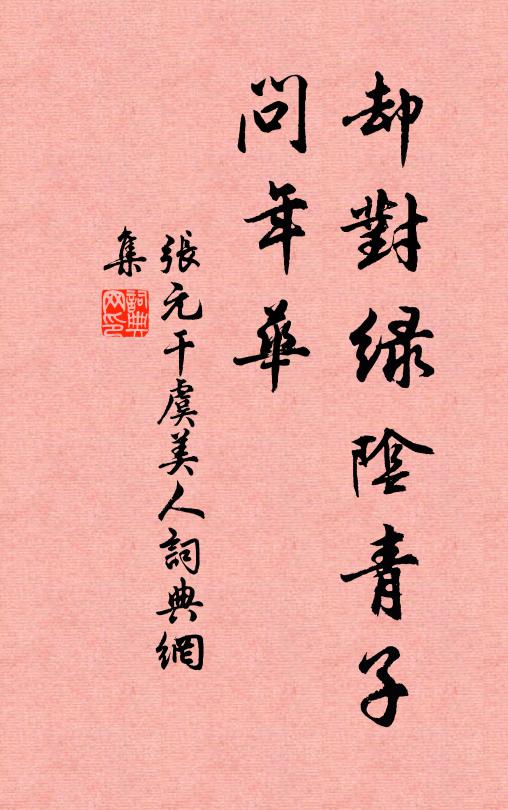 却對綠陰青子
問年華
張元干虞美人詞典網
集
詞典网印